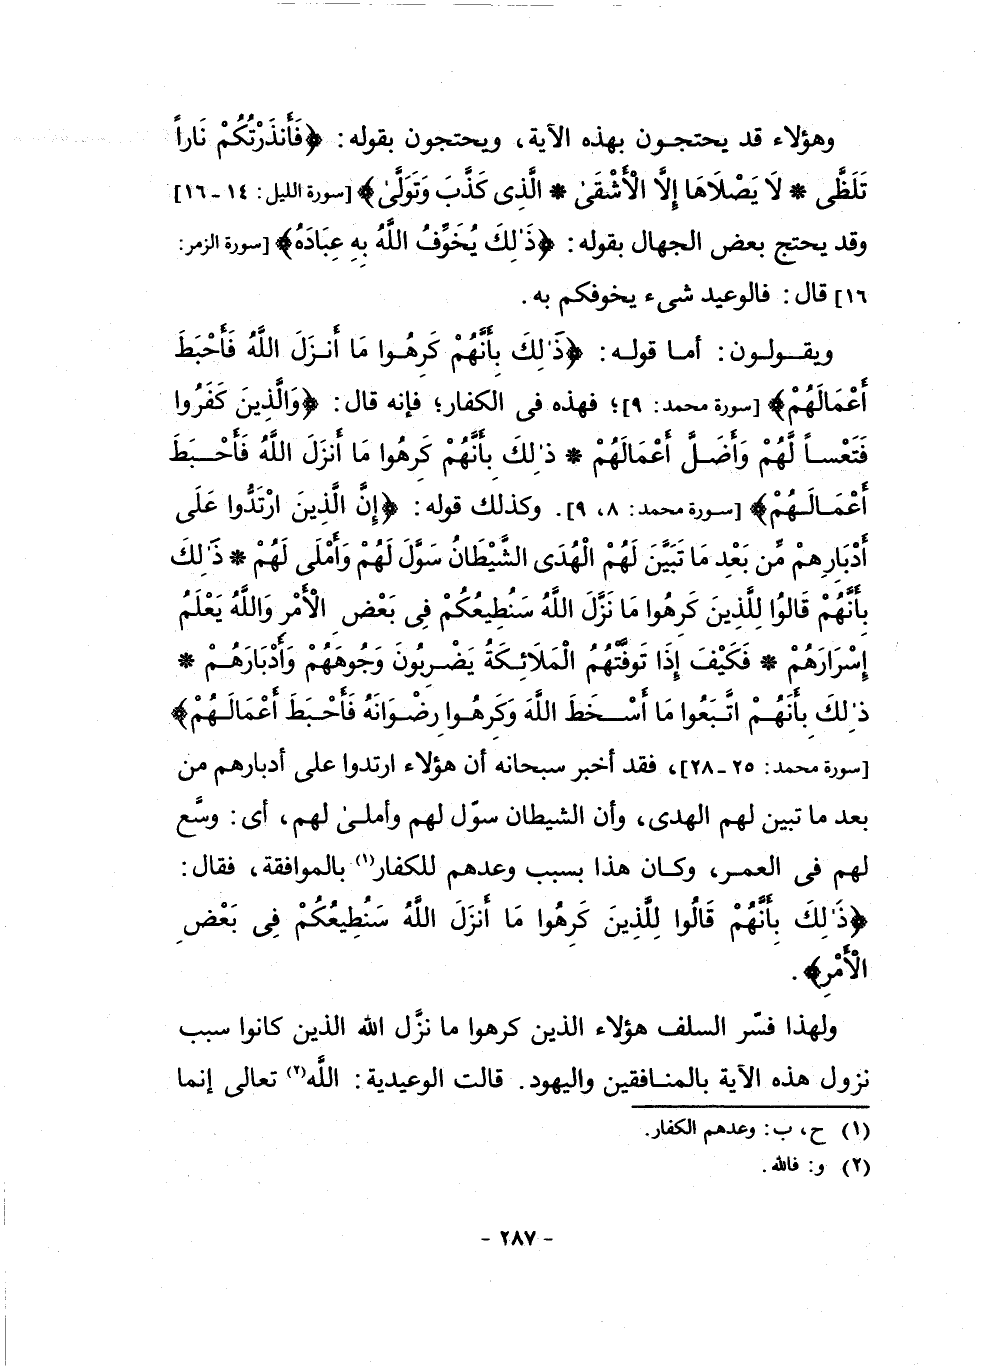 وهؤلاء قد يحتجـون بهذه الآية، ويحتجون بقوله: ﴿فَأَنذَرْتُكُمْ نَاراً
تَلَظَّى * لَا يَصْلَاهَا إِلَّا الْأَشْقَىٰ * الَّذِى كَذَّبَ وَتَوَلَّىٰ﴾ [سورة الليل: ١٤ ـ ١٦]
وقد يحتج بعض الجهال بقوله: ﴿ذَٰلِكَ يُخَوِّفُ اللَّهُ بِهِ عِبَادَهُ﴾ [سورة الزمر:
١٦] قال: فالوعيد شىء يخوفكم به.
ويقــولـون: أمـا قولـه: ﴿ذَٰلِكَ بِأَنَّهُمْ كَرِهُـوا مَا أَنـزَلَ اللَّهُ فَأَحْبَطَ
أَعْمَالَهُمْ﴾ [سورة محمد: ٩]؛ فهذه فى الكفار؛ فإنه قال: ﴿وَالَّذِينَ كَفَرُوا
فَتَعْسـاً لَّهُمْ وَأَضَـلَّ أَعْمَالَهُمْ * ذٰلِكَ بِأَنَّهُمْ كَرِهُوا مَا أَنزَلَ اللَّهُ فَأَحْـبَطَ
أَعْمَـالَـهُمْ﴾ [سـورة محمد: ٨، ٩]. وكذلك قوله: ﴿إِنَّ الَّذِينَ ارْتَدُّوا عَلَى
أَدْبَارِهِمْ مِّن بَعْدِ مَا تَبَيَّنَ لَهُمْ الْهُدَى الشَّيْطَانُ سَوَّلَ لَهُمْ وَأَمْلَى لَهُمْ * ذَٰلِكَ
بِأَنَّهُمْ قَالُوا لِلَّذِينَ كَرِهُوا مَا نَزَّلَ اللَّهُ سَنُطِيعُكُمْ فِى بَعْضِ الْأَمْرِ وَاللَّهُ يَعْلَمُ
إِسْرَارَهُمْ * فَكَيْفَ إِذَا تَوفَّتْهُمُ الْمَلَائِـكَةُ يَضْـرِبُونَ وَجُوهَهُمْ وَأَدْبَارَهُـمْ *
ذٰلِكَ بِأَنَهُـمْ اتَّبَعُوا مَا أَسْـخَطَ اللَّهَ وَكَرِهُـوا رِضْـوَانَهُ فَأَحْـبَطَ أَعْمَالَـهُمْ﴾
[سورة محمد: ٢٥ ـ ٢٨]، فقد أخبر سبحانه أن هؤلاء ارتدوا على أدبارهم من
بعد ما تبين لهم الهدى، وأن الشيطان سوّل لهم وأملىٰ لهم، أى: وسَّع
لهم فى العمـر، وكـان هذا بسبب وعدهم للكفار(١) بالموافقة، فقال:
﴿ذَٰلِكَ بِأَنَّهُمْ قَالُوا لِلَّذِينَ كَرِهُوا مَا أَنزَلَ اللَّهُ سَنُطِيعُكُمْ فِى بَعْضِ
الْأَمْرِ﴾.
ولهذا فسّر السلف هؤلاء الذين كرهوا ما نزَّل الله الذين كانوا سبب
نزول هذه الآية بالمنـافقين واليهود. قالت الوعيدية: اللَّه(٢) تعالى إنما
(١) ح، ب: وعدهم الكفار.
(٢) و: فالله.
- ٢٨٧ -